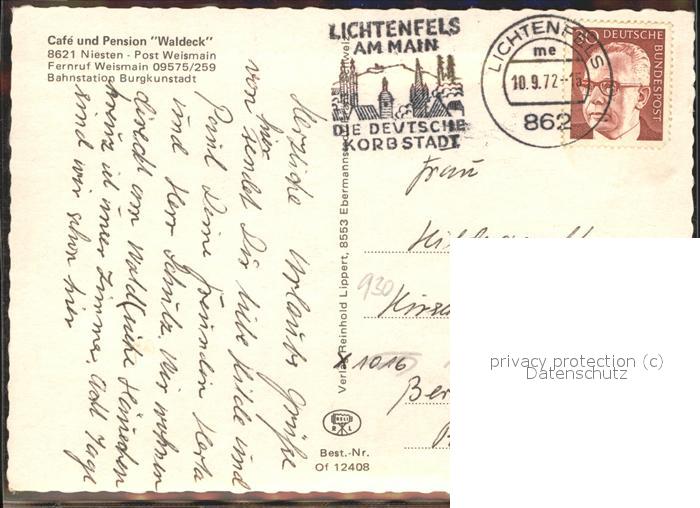 Café und Pension "Waldeck"
8621 Niesten - Post Weismain
Fernruf Weismain 09575/259
Bahnstation Burgkunstadt
LICHTENFELS
AM MAIN
DIE DEUTSCHE
KORBSTADT
LICHTENFELS
me
10.9.72
862
30 DEUTSCHE
BUNDESPOST
Herzliche Urlaubs Grüße
von hier sendet Dir liebe Hilde und
Paul Deine Freundin Herta
und Herr Schulz. Wir wohnen
direkt am Wald (siehe Häuschen
Kreuz ist unser Zimmer. Acht Tage
sind wir schon hier
Verlag Reinhold Lippert, 8553 Ebermannstadt
Frau
930
X 1016
Ber
B
R L
Best.-Nr.
Of 12408
privacy protection (c)
Datenschutz